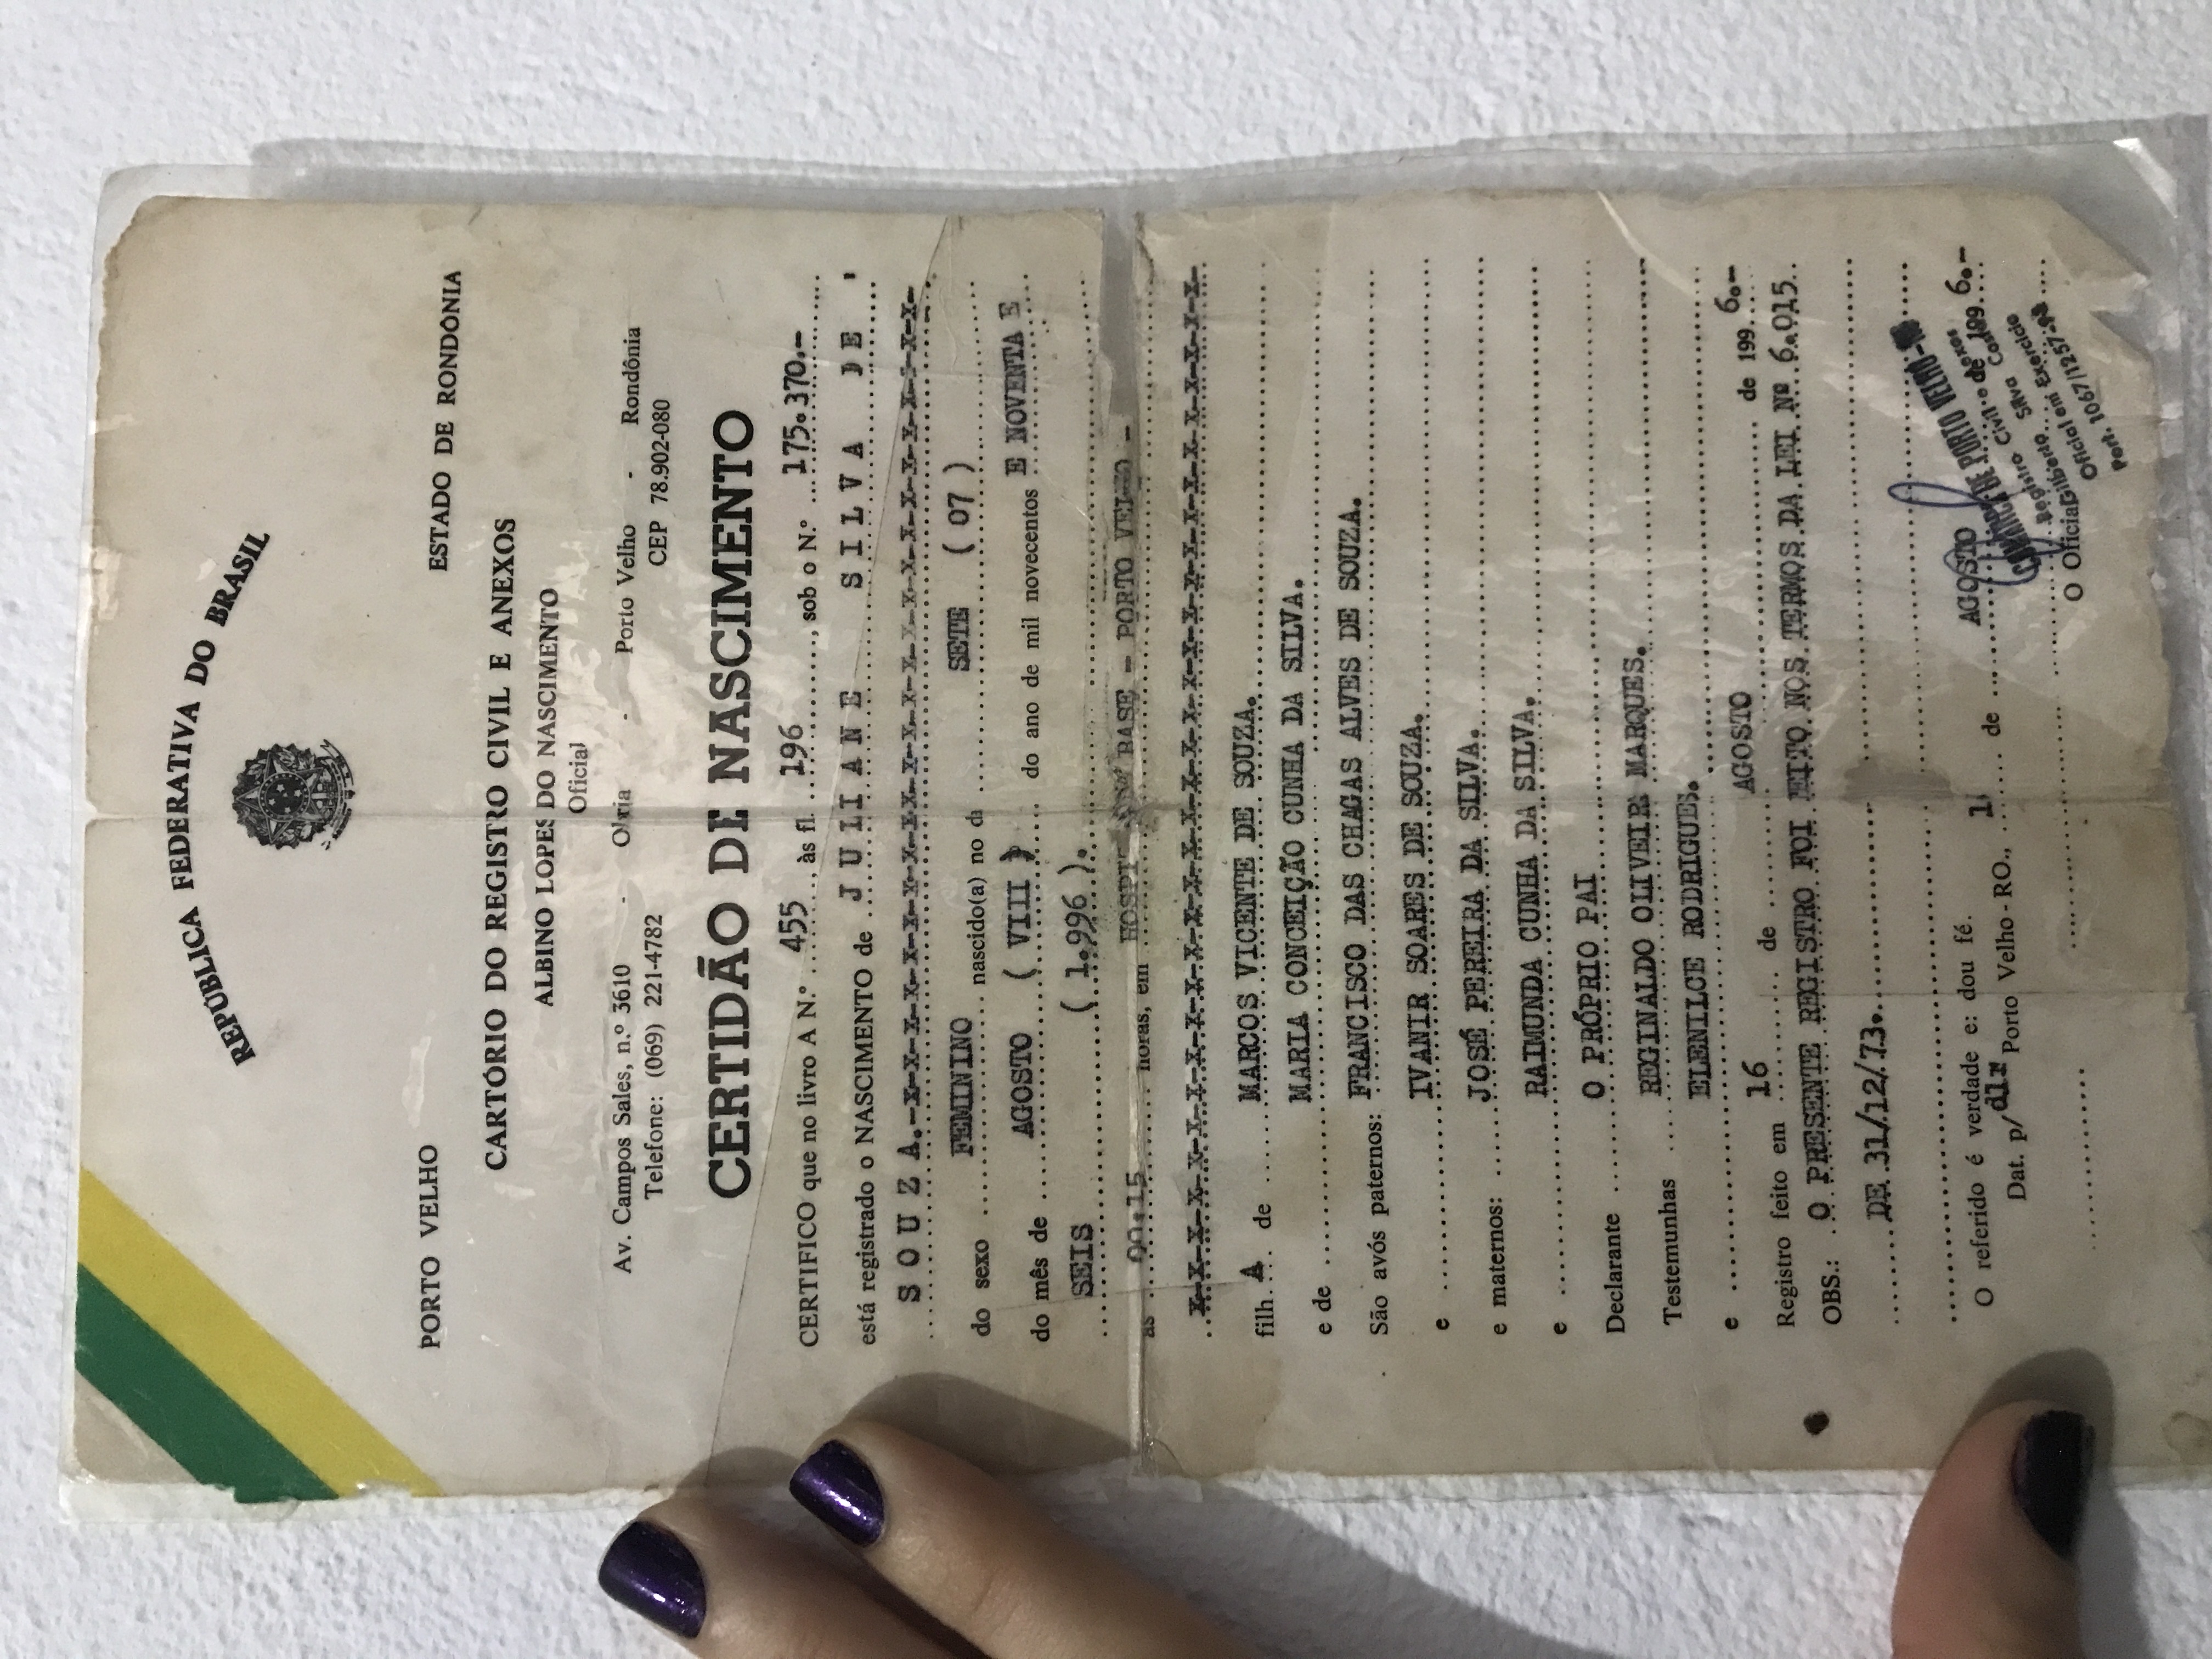 REPÚBLICA FEDERATIVA DO BRASIL
PORTO VELHO ESTADO DE RONDÔNIA
CARTÓRIO DO REGISTRO CIVIL E ANEXOS
ALBINO LOPES DO NASCIMENTO
Oficial
Av. Campos Sales, n.º 3610 - Olaria - Porto Velho - Rondônia
Telefone: (069) 221-4782 CEP 78.902-080
CERTIDÃO DE NASCIMENTO
CERTIFICO que no livro A N.º 455, às fl. 196, sob o N.º 175.370.-
está registrado o NASCIMENTO de J U L I A N E S I L V A D E
S O U Z A.-X-X-X-X-X-X-X-X-X-X-X-X-X-X-X-X-X-X-X-
do sexo FEMININO nascido(a) no di SETE ( 07 )
do mês de AGOSTO ( VIII ) do ano de mil novecentos E NOVENTA E
SEIS ( 1.996 ).
às 00:15 horas, em BASE - PORTO VELHO -
X-X-X-X-X-X-X-X-X-X-X-X-X-X-X-X-X-X-X-X-X-X-X-X-
filh A de MARCOS VICENTE DE SOUZA.
e de MARIA CONCEIÇÃO CUNHA DA SILVA.
São avós paternos: FRANCISCO DAS CHAGAS ALVES DE SOUZA.
e IVANIR SOARES DE SOUZA.
e maternos: JOSÉ PEREIRA DA SILVA.
e RAIMUNDA CUNHA DA SILVA.
Declarante O PRÓPRIO PAI
Testemunhas REGINALDO OLIVEIR MARQUES.
e ELENILCE RODRIGUES.
Registro feito em 16 de AGOSTO de 199 6.-
OBS.: O PRESENTE REGISTRO FOI FEITO NOS TERMOS DA LEI Nº 6.015
DE 31/12/73.
O referido é verdade e: dou fé.
Dat. p/ dlr Porto Velho - RO., 1 de AGOSTO de 199 6.-
COMARCA DE PORTO VELHO-
Registro Civil e Anexos
Silva
Oficial em Exercício
Port. 1067/1257-93
O Oficial